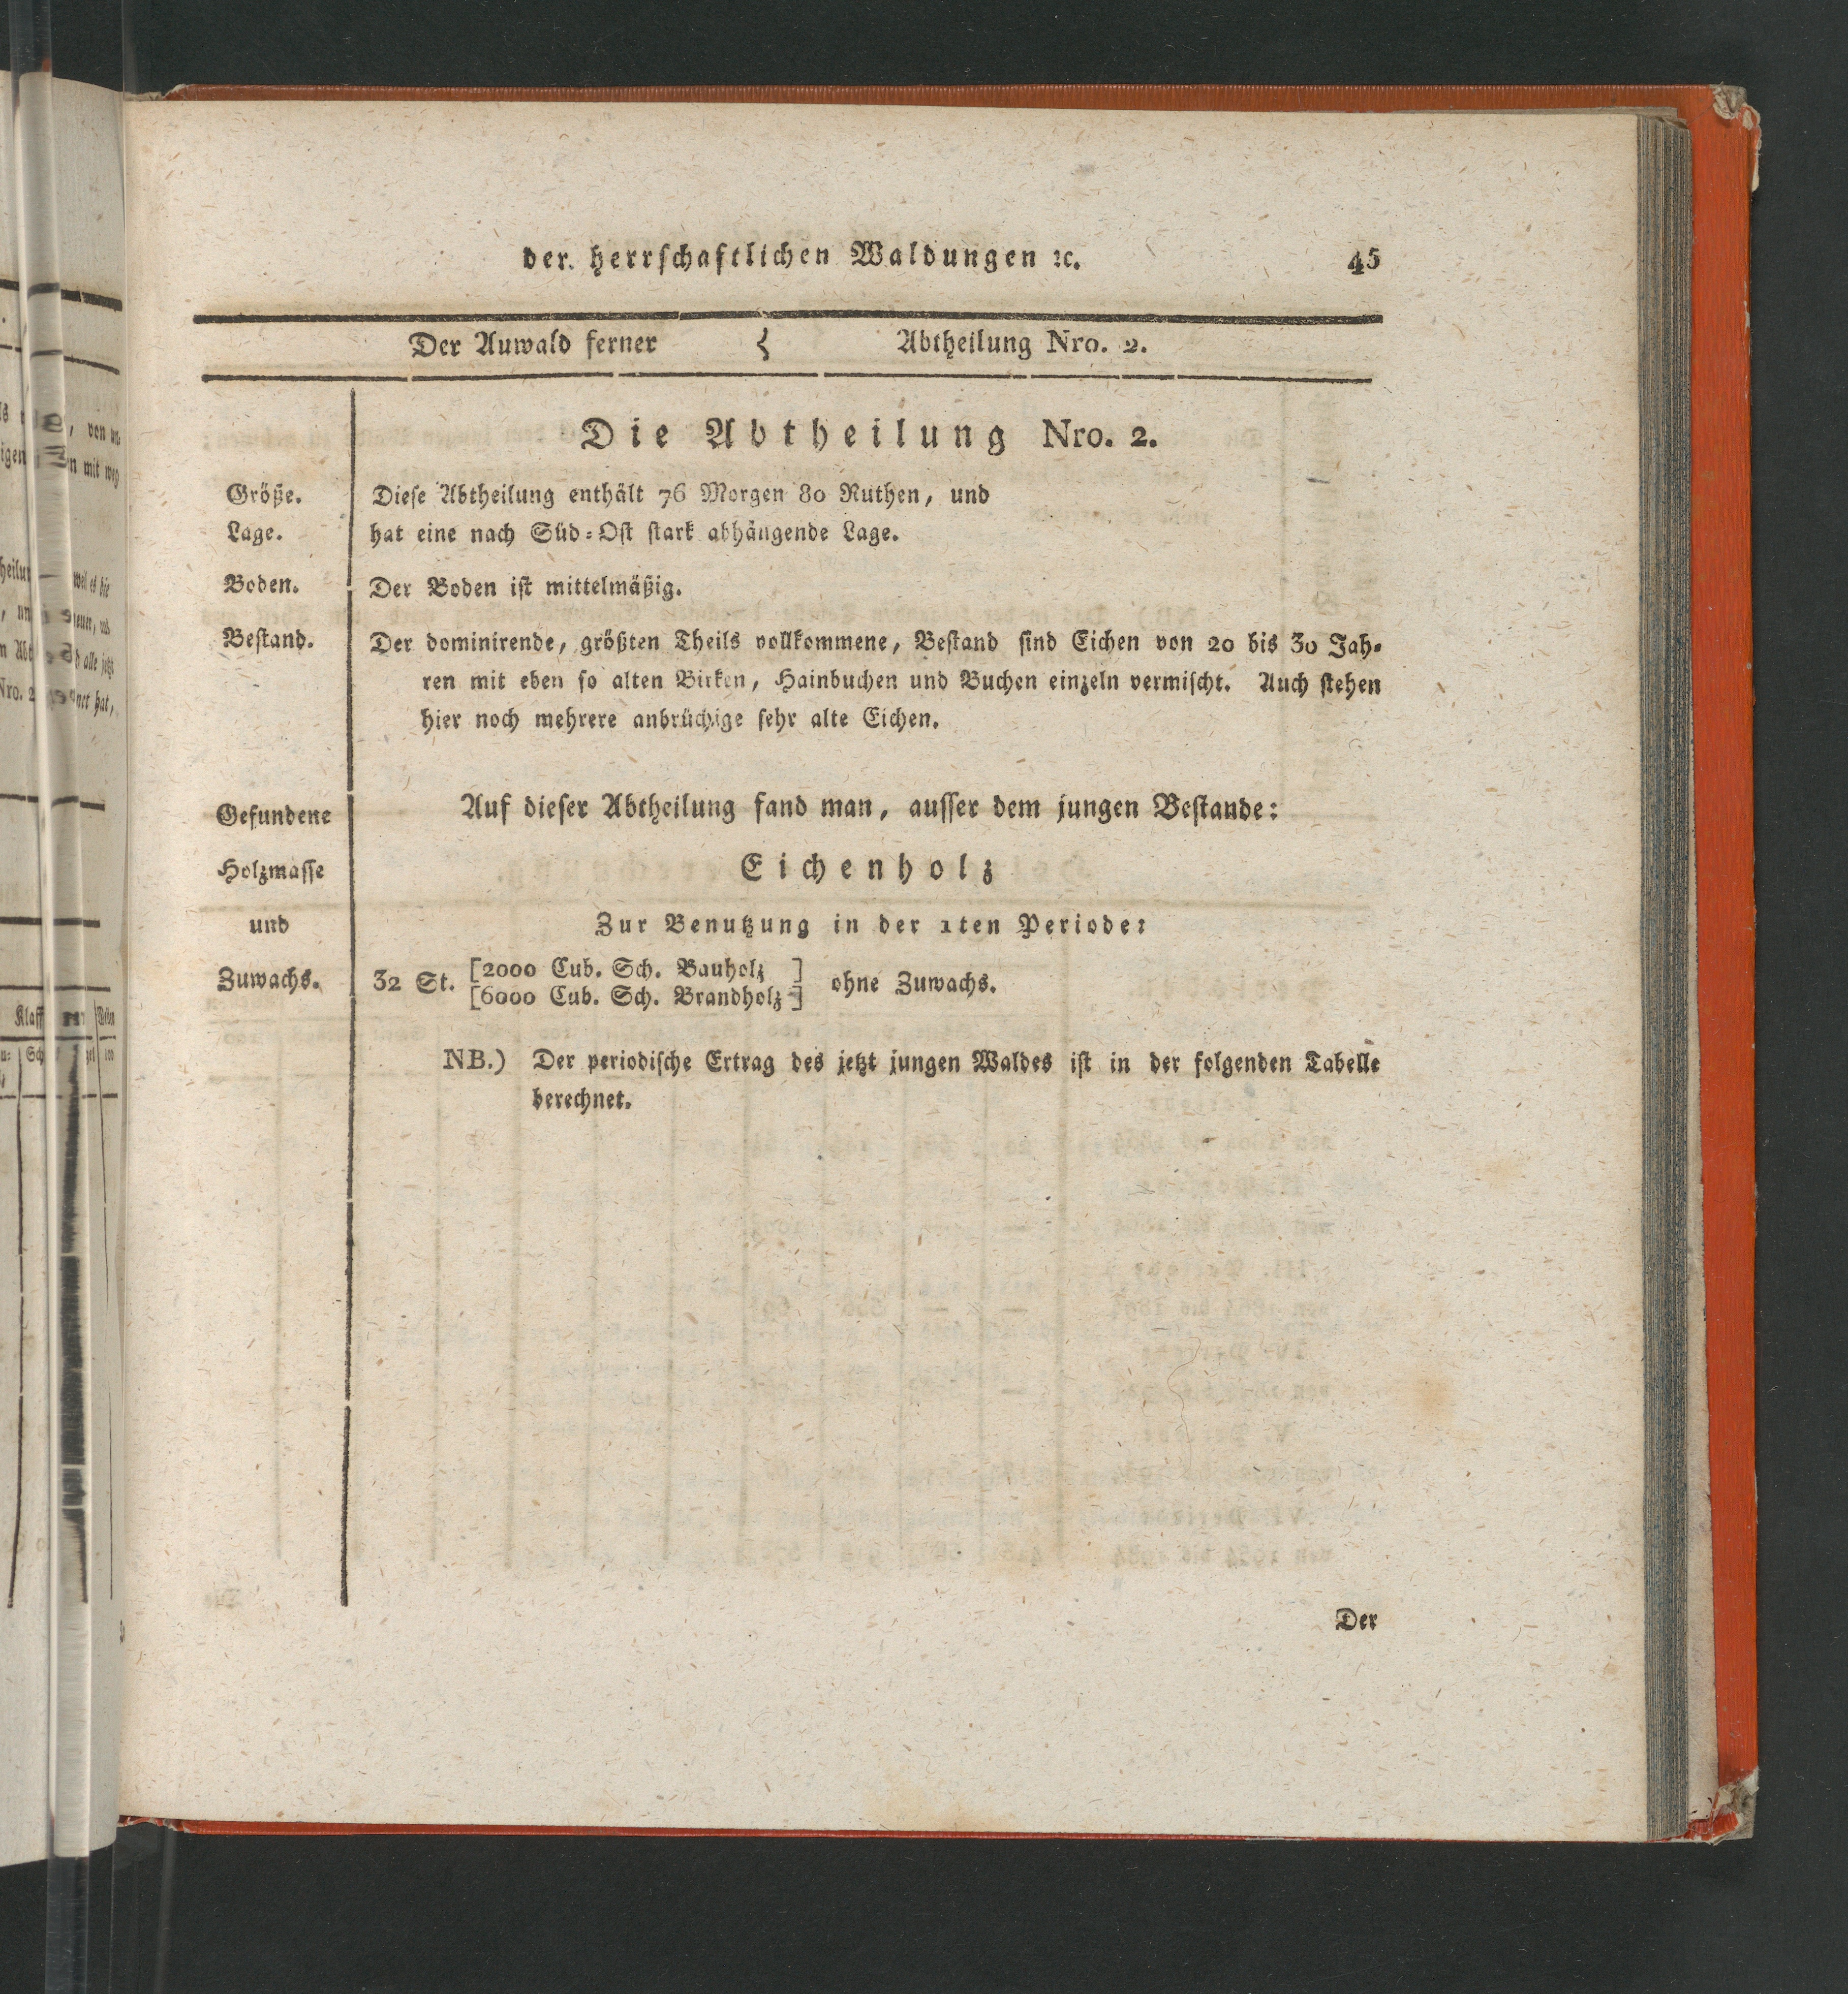 der herrschaftlichen Waldungen ꝛc. 45
Der Auwald ferner { Abtheilung Nro. 2.
Die Abtheilung Nro. 2.
Größe. Diese Abtheilung enthält 76 Morgen 80 Ruthen, und
Lage. hat eine nach Süd=Ost stark abhängende Lage.
Boden. Der Boden ist mittelmäßig.
Bestand. Der dominirende, größten Theils vollkommene, Bestand sind Eichen von 20 bis 30 Jah=
ren mit eben so alten Birken, Hainbuchen und Buchen einzeln vermischt. Auch stehen
hier noch mehrere anbrüchige sehr alte Eichen.
Gefundene Auf dieser Abtheilung fand man, ausser dem jungen Bestande:
Holzmasse Eichenholz
und Zur Benutzung in der 1ten Periode:
Zuwachs. 32 St. [2000 Cub. Sch. Bauholz]
[6000 Cub. Sch. Brandholz] ohne Zuwachs.
NB.) Der periodische Ertrag des jetzt jungen Waldes ist in der folgenden Tabelle
berechnet.
Der